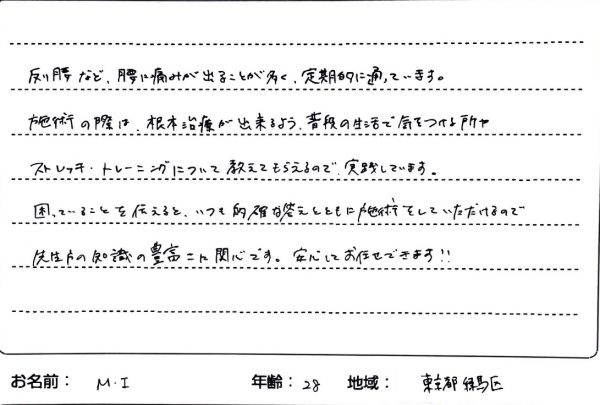 反り腰など、腰に痛みが出ることが多く、定期的に通っています。
施術の際は、根本治療が出来るよう、普段の生活で気をつける所や
ストレッチ・トレーニングについて教えてもらえるので、実践しています。
困っていることを伝えると、いつも的確な答えとともに施術をしていただけるので
先生方の知識の豊富さに関心です。安心してお任せできます!!
お名前: M・I 年齢: 28 地域: 東京都練馬区